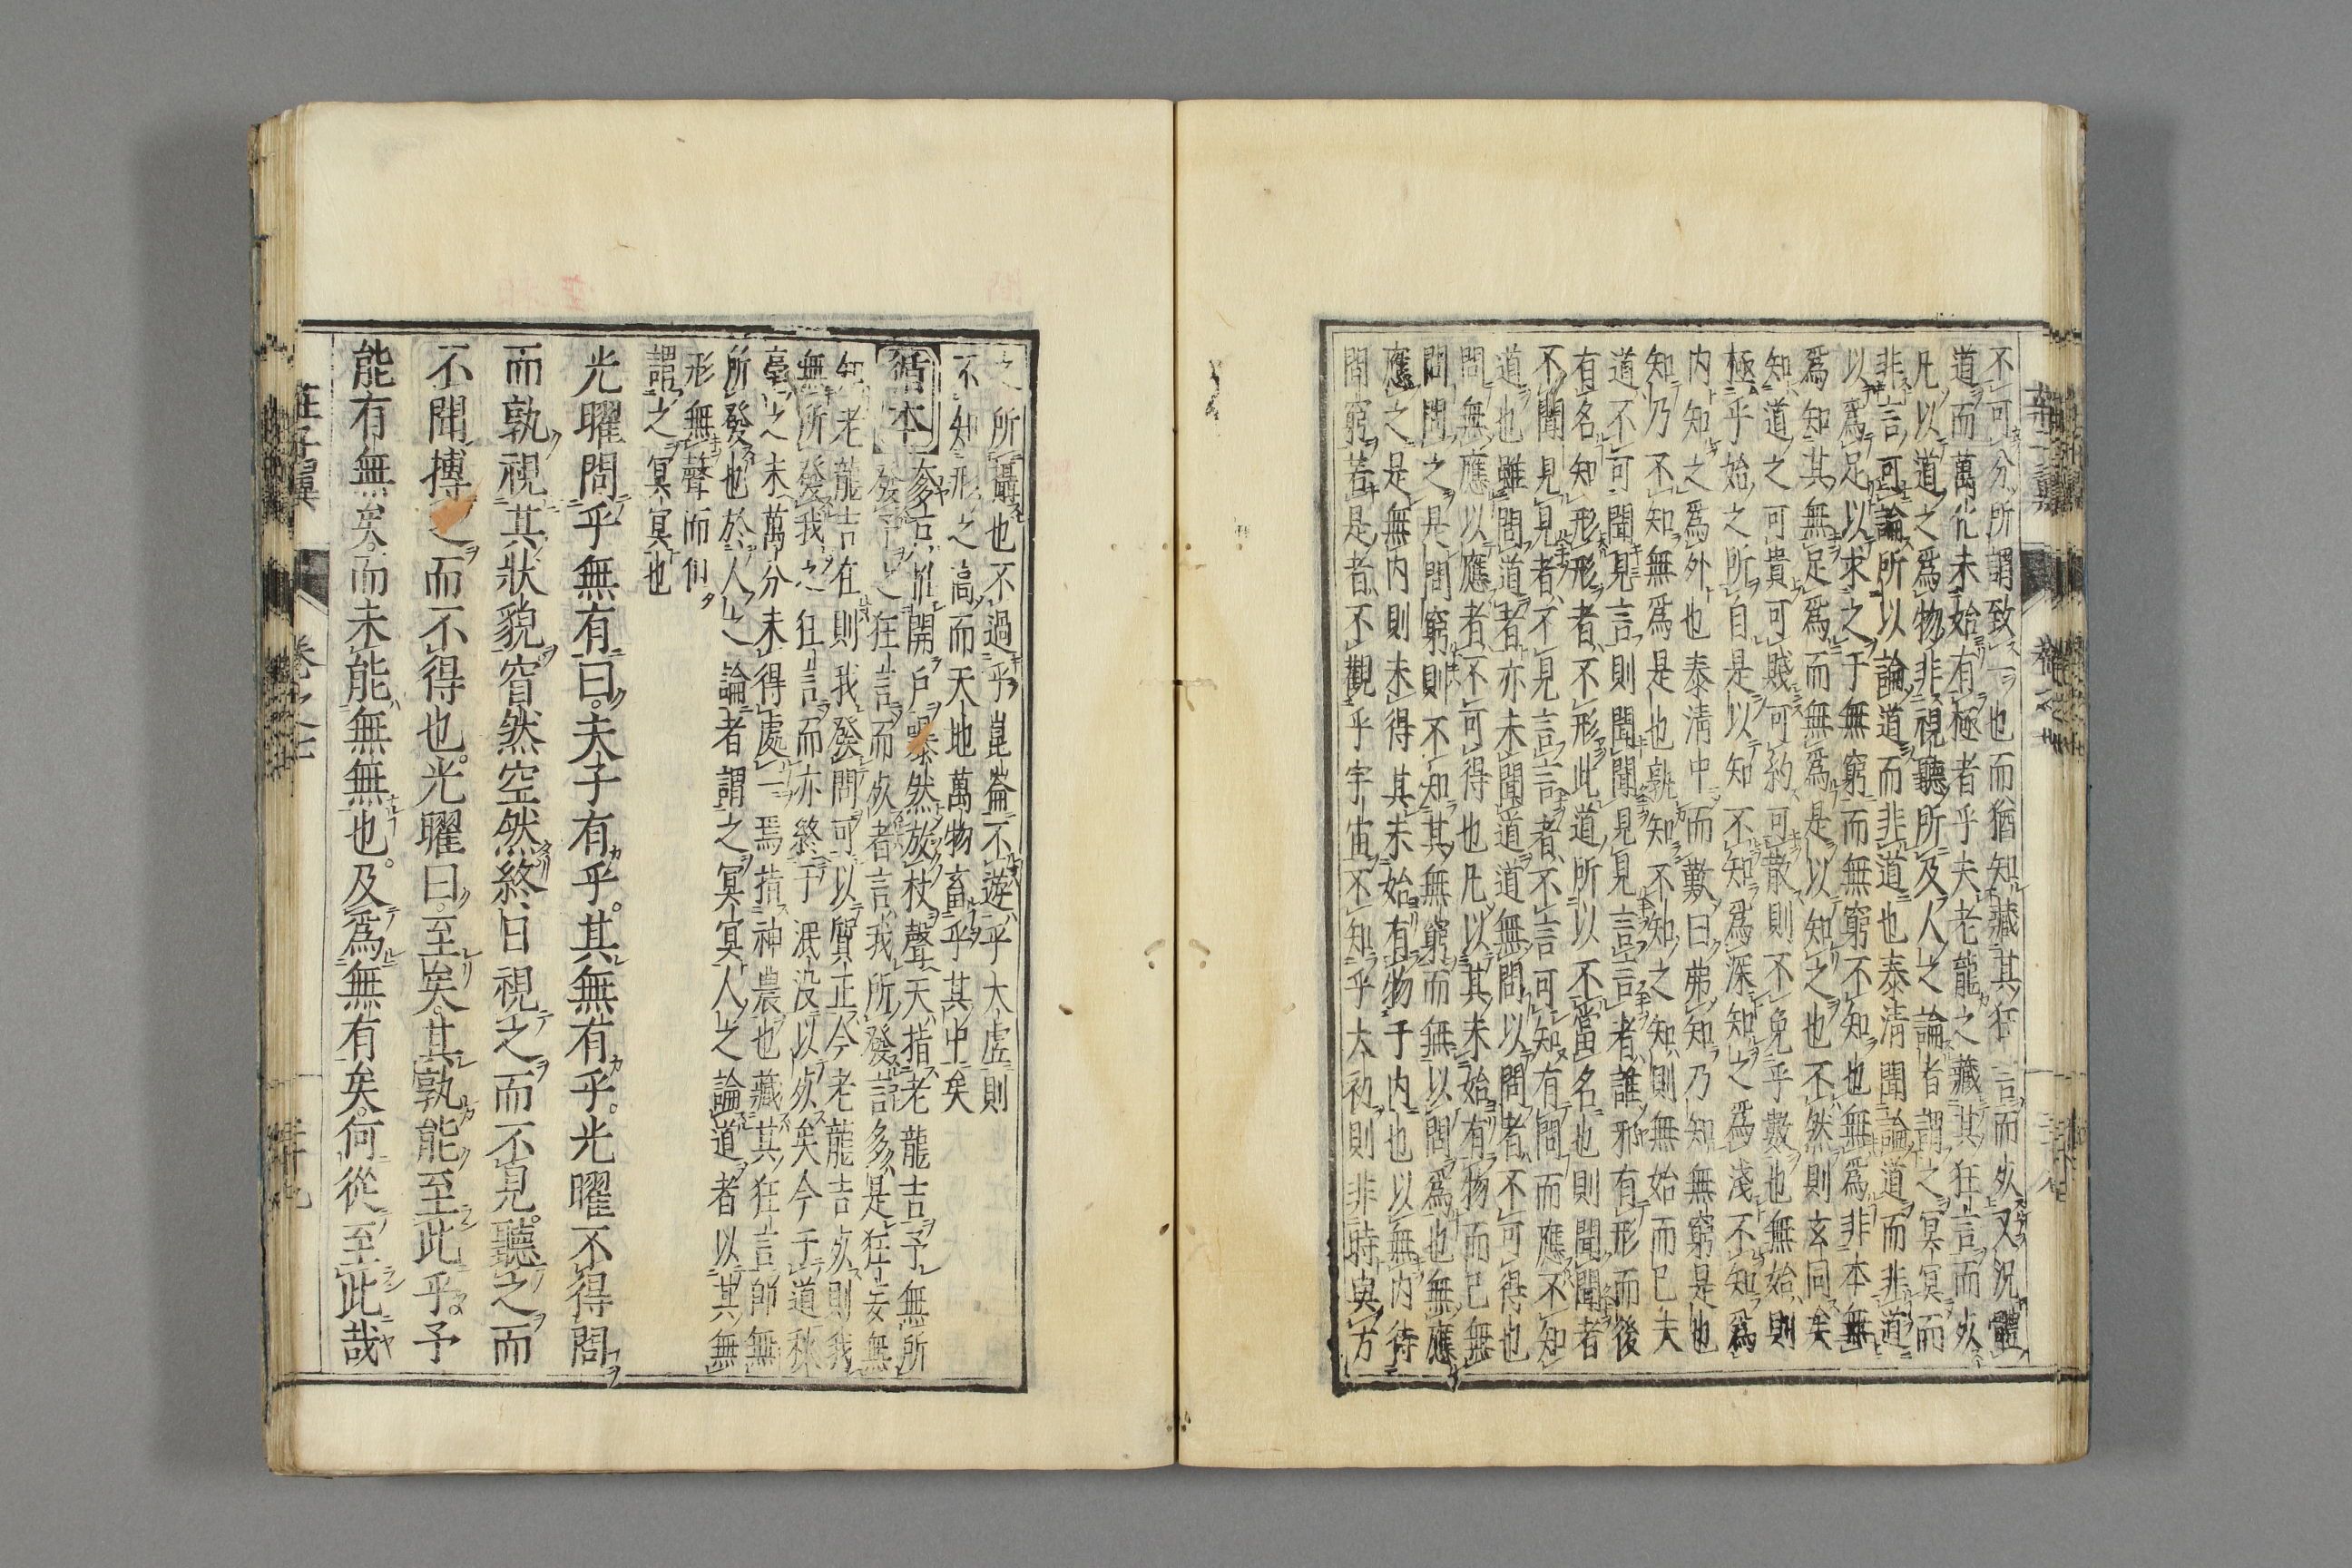 不可分所謂致一也而猶知藏其狂言而死又況體
道而萬化未始有極者乎夫老龍之藏其狂言而死
凡以道之爲物非視聽所及人之論者謂之冥冥而
非言可論所以論道而非道也泰清聞論道而非道
以爲足以求之于無窮而無窮不知也無爲非本無
爲知其無足爲而無爲是以知之也不然則玄同矣
知道之可貴可賤可約可散則不免乎數也無始則
極乎始之所自是以知不知爲深知之爲淺不知爲
内知之爲外也泰清中而歎曰弗知乃知無窮是也
知乃不知無爲是也孰知不知之知則無始而已夫
道不可聞見言則聞聞見見言言者誰邪有形而後
有名知形形者不形此道所以不當名也則聞聞者
不聞見見者不見言言者不言可知有問而應不知
道也雖問道者亦未聞道道無問以問者不可得也
問無應以應者不可得也凡以其未始有物而已無
問問之是問窮則不知其無窮而無以問爲也無應
應之是無内則未得其未始有物于内也以無内待
問窮若是者不觀乎宇宙不知乎大初則非時與方
之所攝也不過乎崑崙不遊乎太虛則
不知形之高而天地萬物畜乎其中矣
循本 奓戸推開戶曝然放杖聲天指老龍吉予無所
發予之狂言而死者言我所發言多是狂妄無
知老龍吉在則我發問可以質正今老龍吉死則我
無所發我之狂言而亦終于泯没以死矣今于道秋
毫之末萬分未得處一焉指神農也藏其狂言師無
所發也於人之論者謂之冥冥人之論道者以其無
形無聲而但
謂之冥冥也
光曜問乎無有曰夫子有乎其無有乎光曜不得問
而孰視其狀貌窅然空然終日視之而不見聽之而
不聞搏之而不得也光曜曰至矣其孰能至此乎予
能有無矣而未能無無也及爲無有矣何從至此哉
莊子翼 卷之七